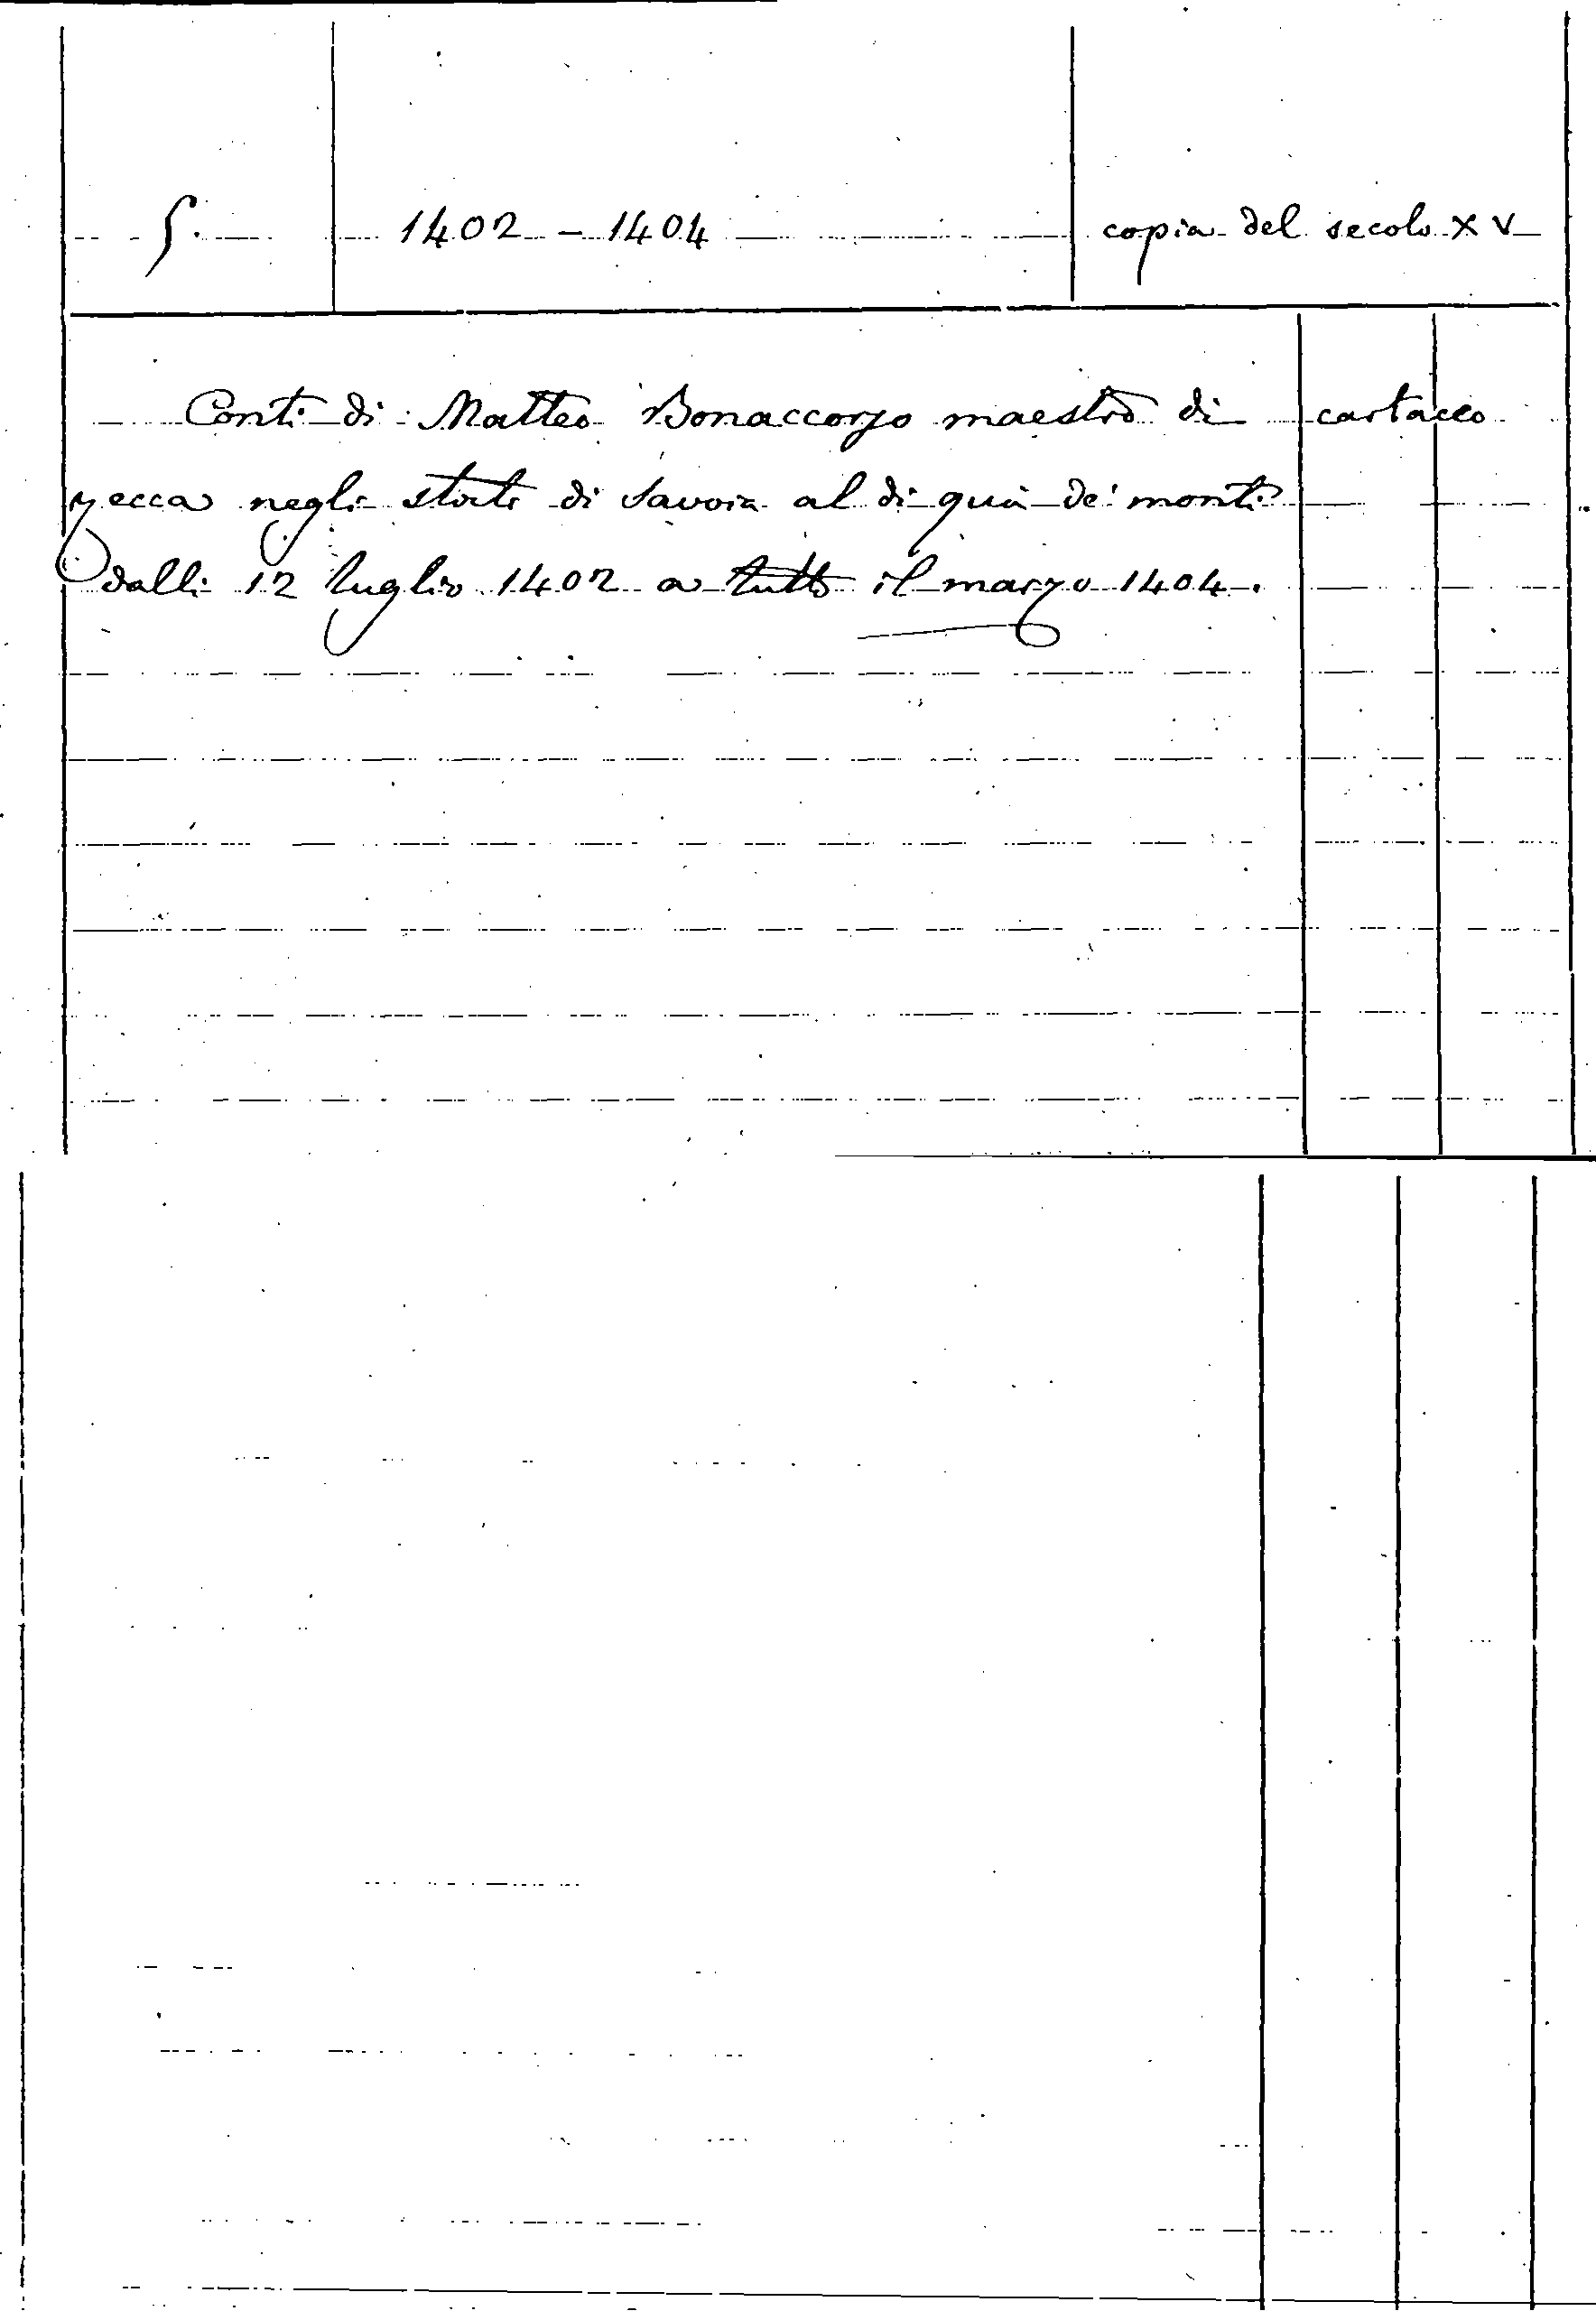 5. 1402 - 1404 copia del secolo XV
Conti di Matteo Bonaccorso maestro di cartaceo
zecca negli stati di Savoia al di quà de' monti
dalli 12 luglio 1402 a tutto il marzo 1404.